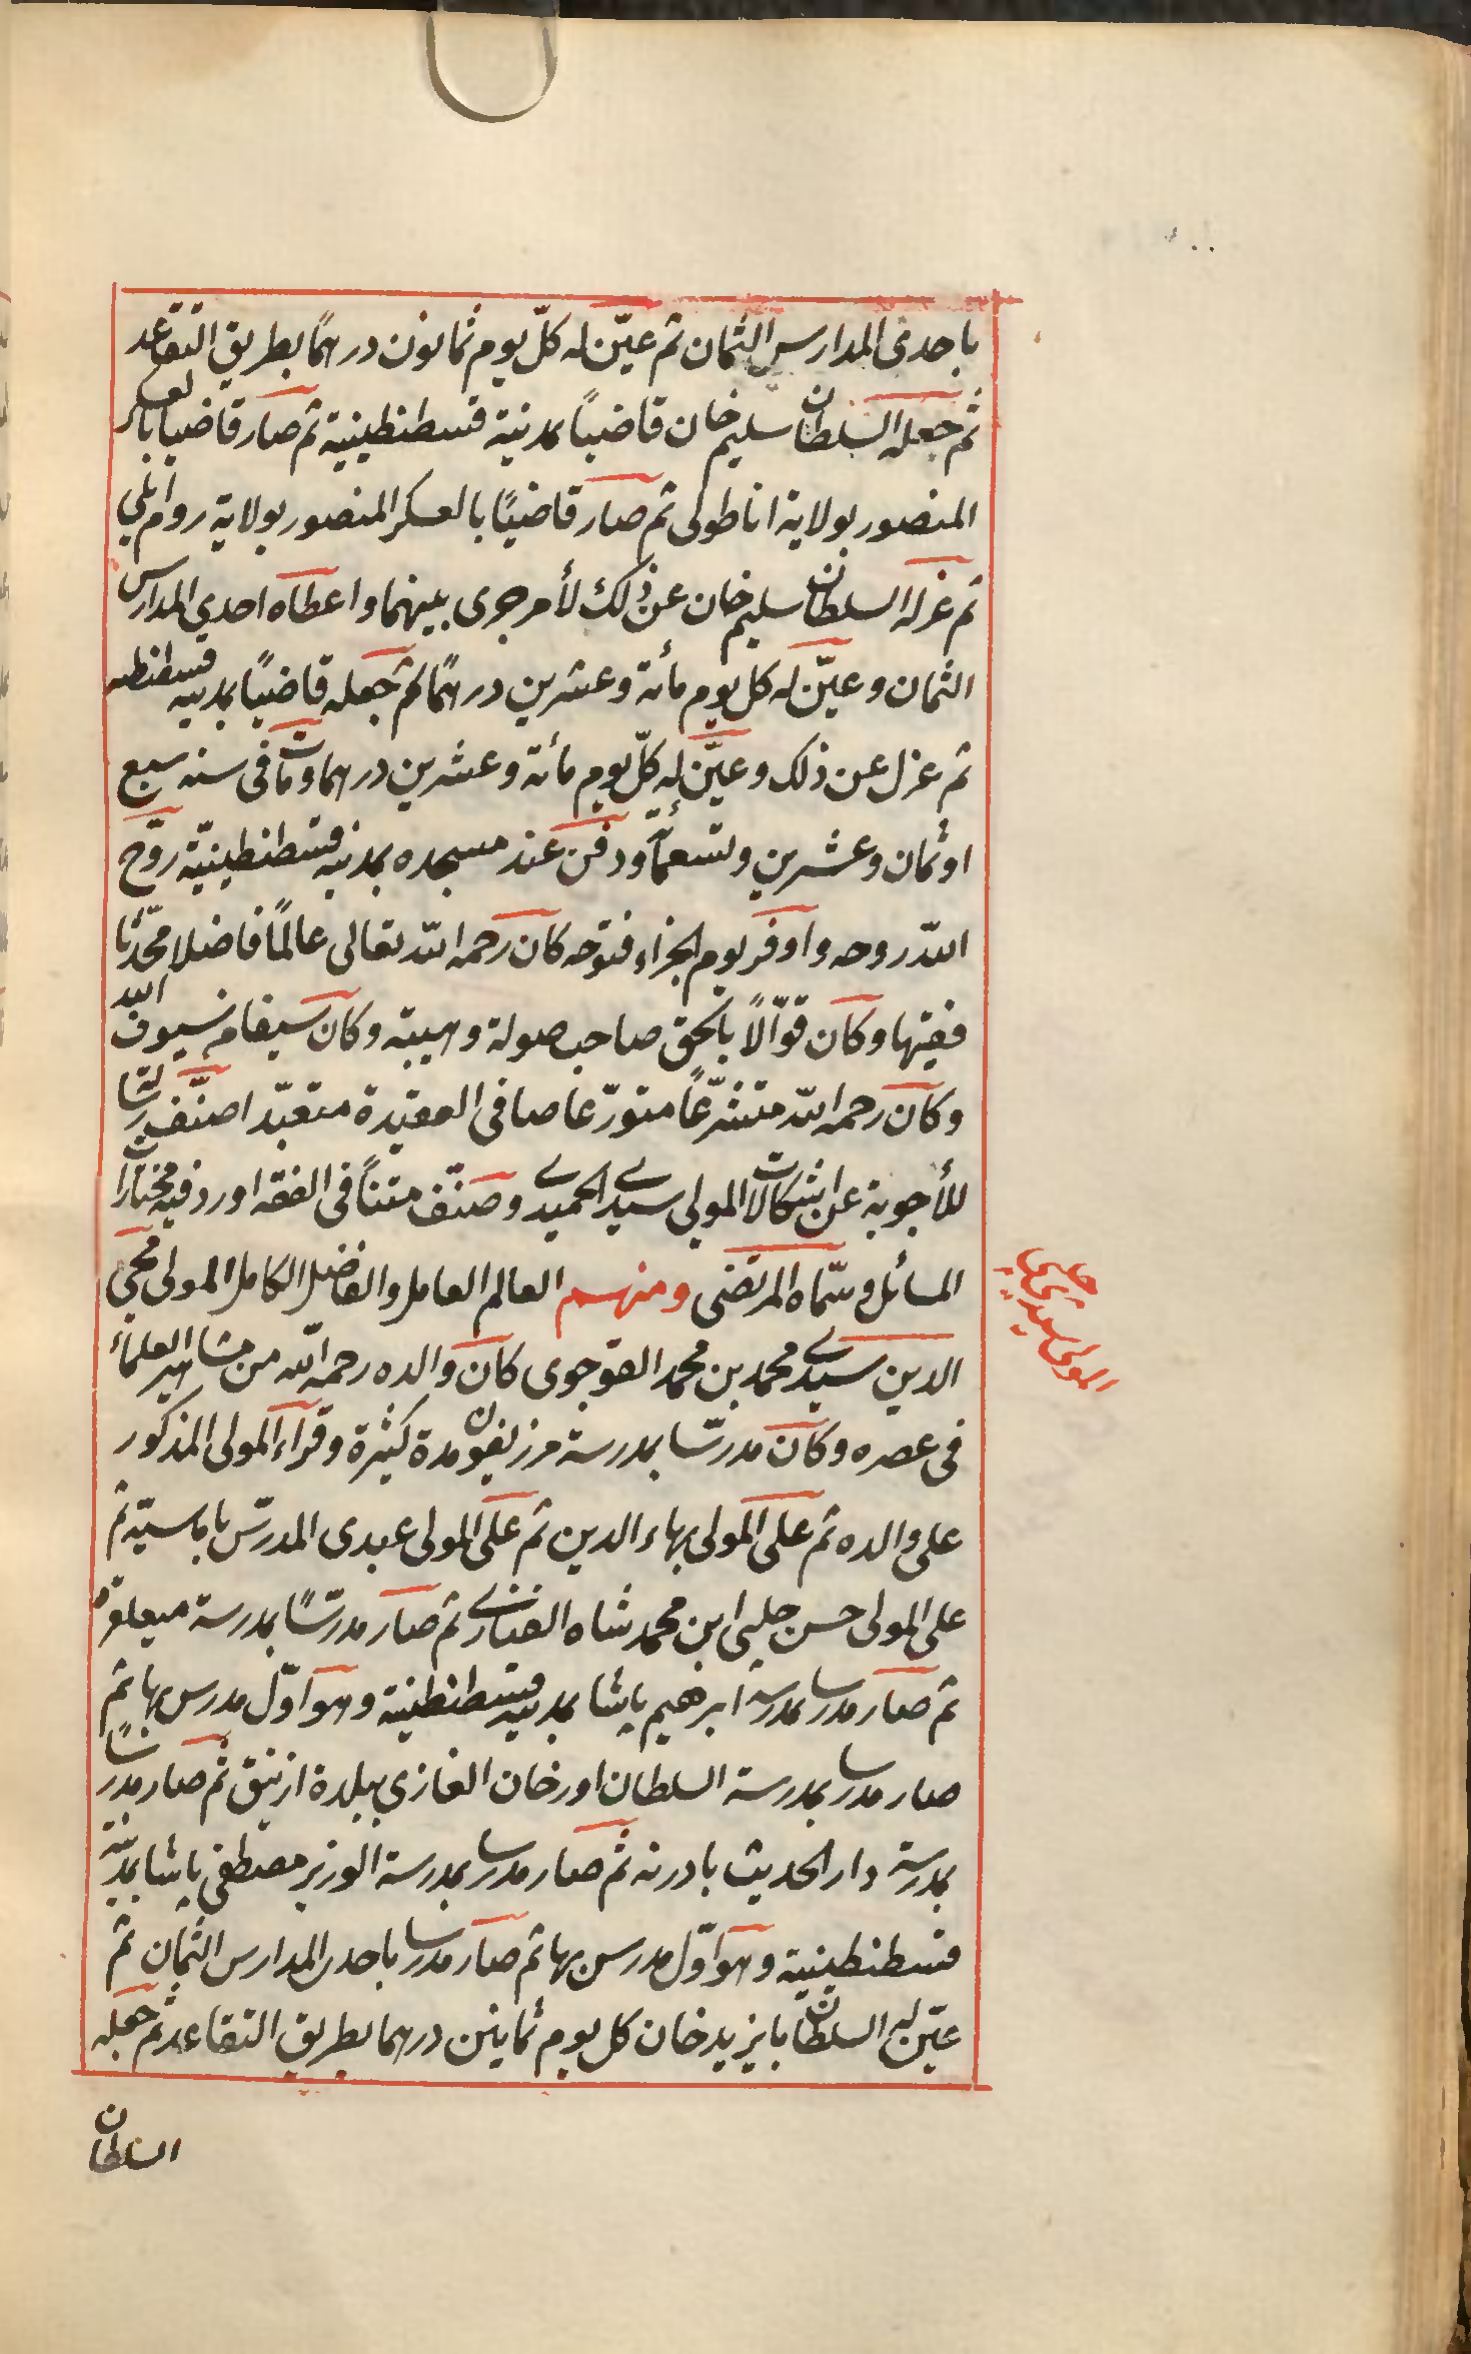 باحدى المدارس الثمان ثم عيّن له كلّ يوم ثمانون درهمًا بطريق التقاعد
ثم جعله السلطان سليم خان قاضياً بمدينة قسطنطينية ثم صار قاضيا بالعسكر
المنصور بولاية اناطولى ثم صار قاضيًا بالعسكر المنصور بولاية روم ايلي
ثم عزله السلطان سليم خان عن ذلك لأمر جرى بينهما واعطاه احدي المدارس
الثمان وعيّن له كل يوم مأته وعشرين درهمًا ثم جعله قاضيًا بمدينه قسطنطنيه
ثم عزل عن ذلك وعيّن له كلّ يوم مأئة وعشرين درهما ومات فى سنه سبع
او ثمان وعشرين وتسعمأئة ودفن عند مسجده بمدينه قسطنطينيّة روّح
اللّه روحه واوفر يوم الجزاء فتوحه كان رحمه اللّه تعالى عالمًا فاضلا محدّثا
فقيها وكان قوّالًا بالحق صاحب صولة وهيبته وكان سيفا من سيوف اللّه
وكان رحمه اللّه متشرّعاً متورّعا صافى العقيدة متعبّدا صنّف كتابا
للأجوبة عن اشكالات المولى سيدي الحميدي وصنّف متناً فى الفقه اورد فيه مختارات
المسائل وسمّاه المرتضى ومنهم العالم العامل والفاضل الكامل المولى محيى
الدين سيدي محمد بن محمد القوجوى كان والده رحمه اللّه من مشاهير العلماء
فى عصره وكان مدرّسا بمدرسة مرزيفون مدة كثيرة وقراء المولى المذكور
على والده ثم على المولى بهاء الدين ثم على المولى عبدى المدرّس باماسيّة ثم
على المولى حسن چلبى ابن محمد شاه الفنارى ثم صار مدرّسًا بمدرسة ميعلقره
ثم صار مدرسا بمدرسة ابرهيم پاشا بمدينه قسطنطنية وهو اوّل مدرس بها ثم
صار مدرسا بمدرسة السلطان اورخان الغازي ببلدة ازنيق ثم صار مدرسًا
بمدرسة دار الحديث بادرنه ثم صار مدرسا بمدرسة الوزير مصطفى پاشا بمدينة
قسطنطينية وهو اوّل مدرس بها ثم صار مدرسا باحدى المدارس الثمان ثم
عيّن له السلطان بايزيد خان كل يوم ثمانين درهما بطريق التقاعد ثم جعله
السلطان
المولى سيدى
چلبى